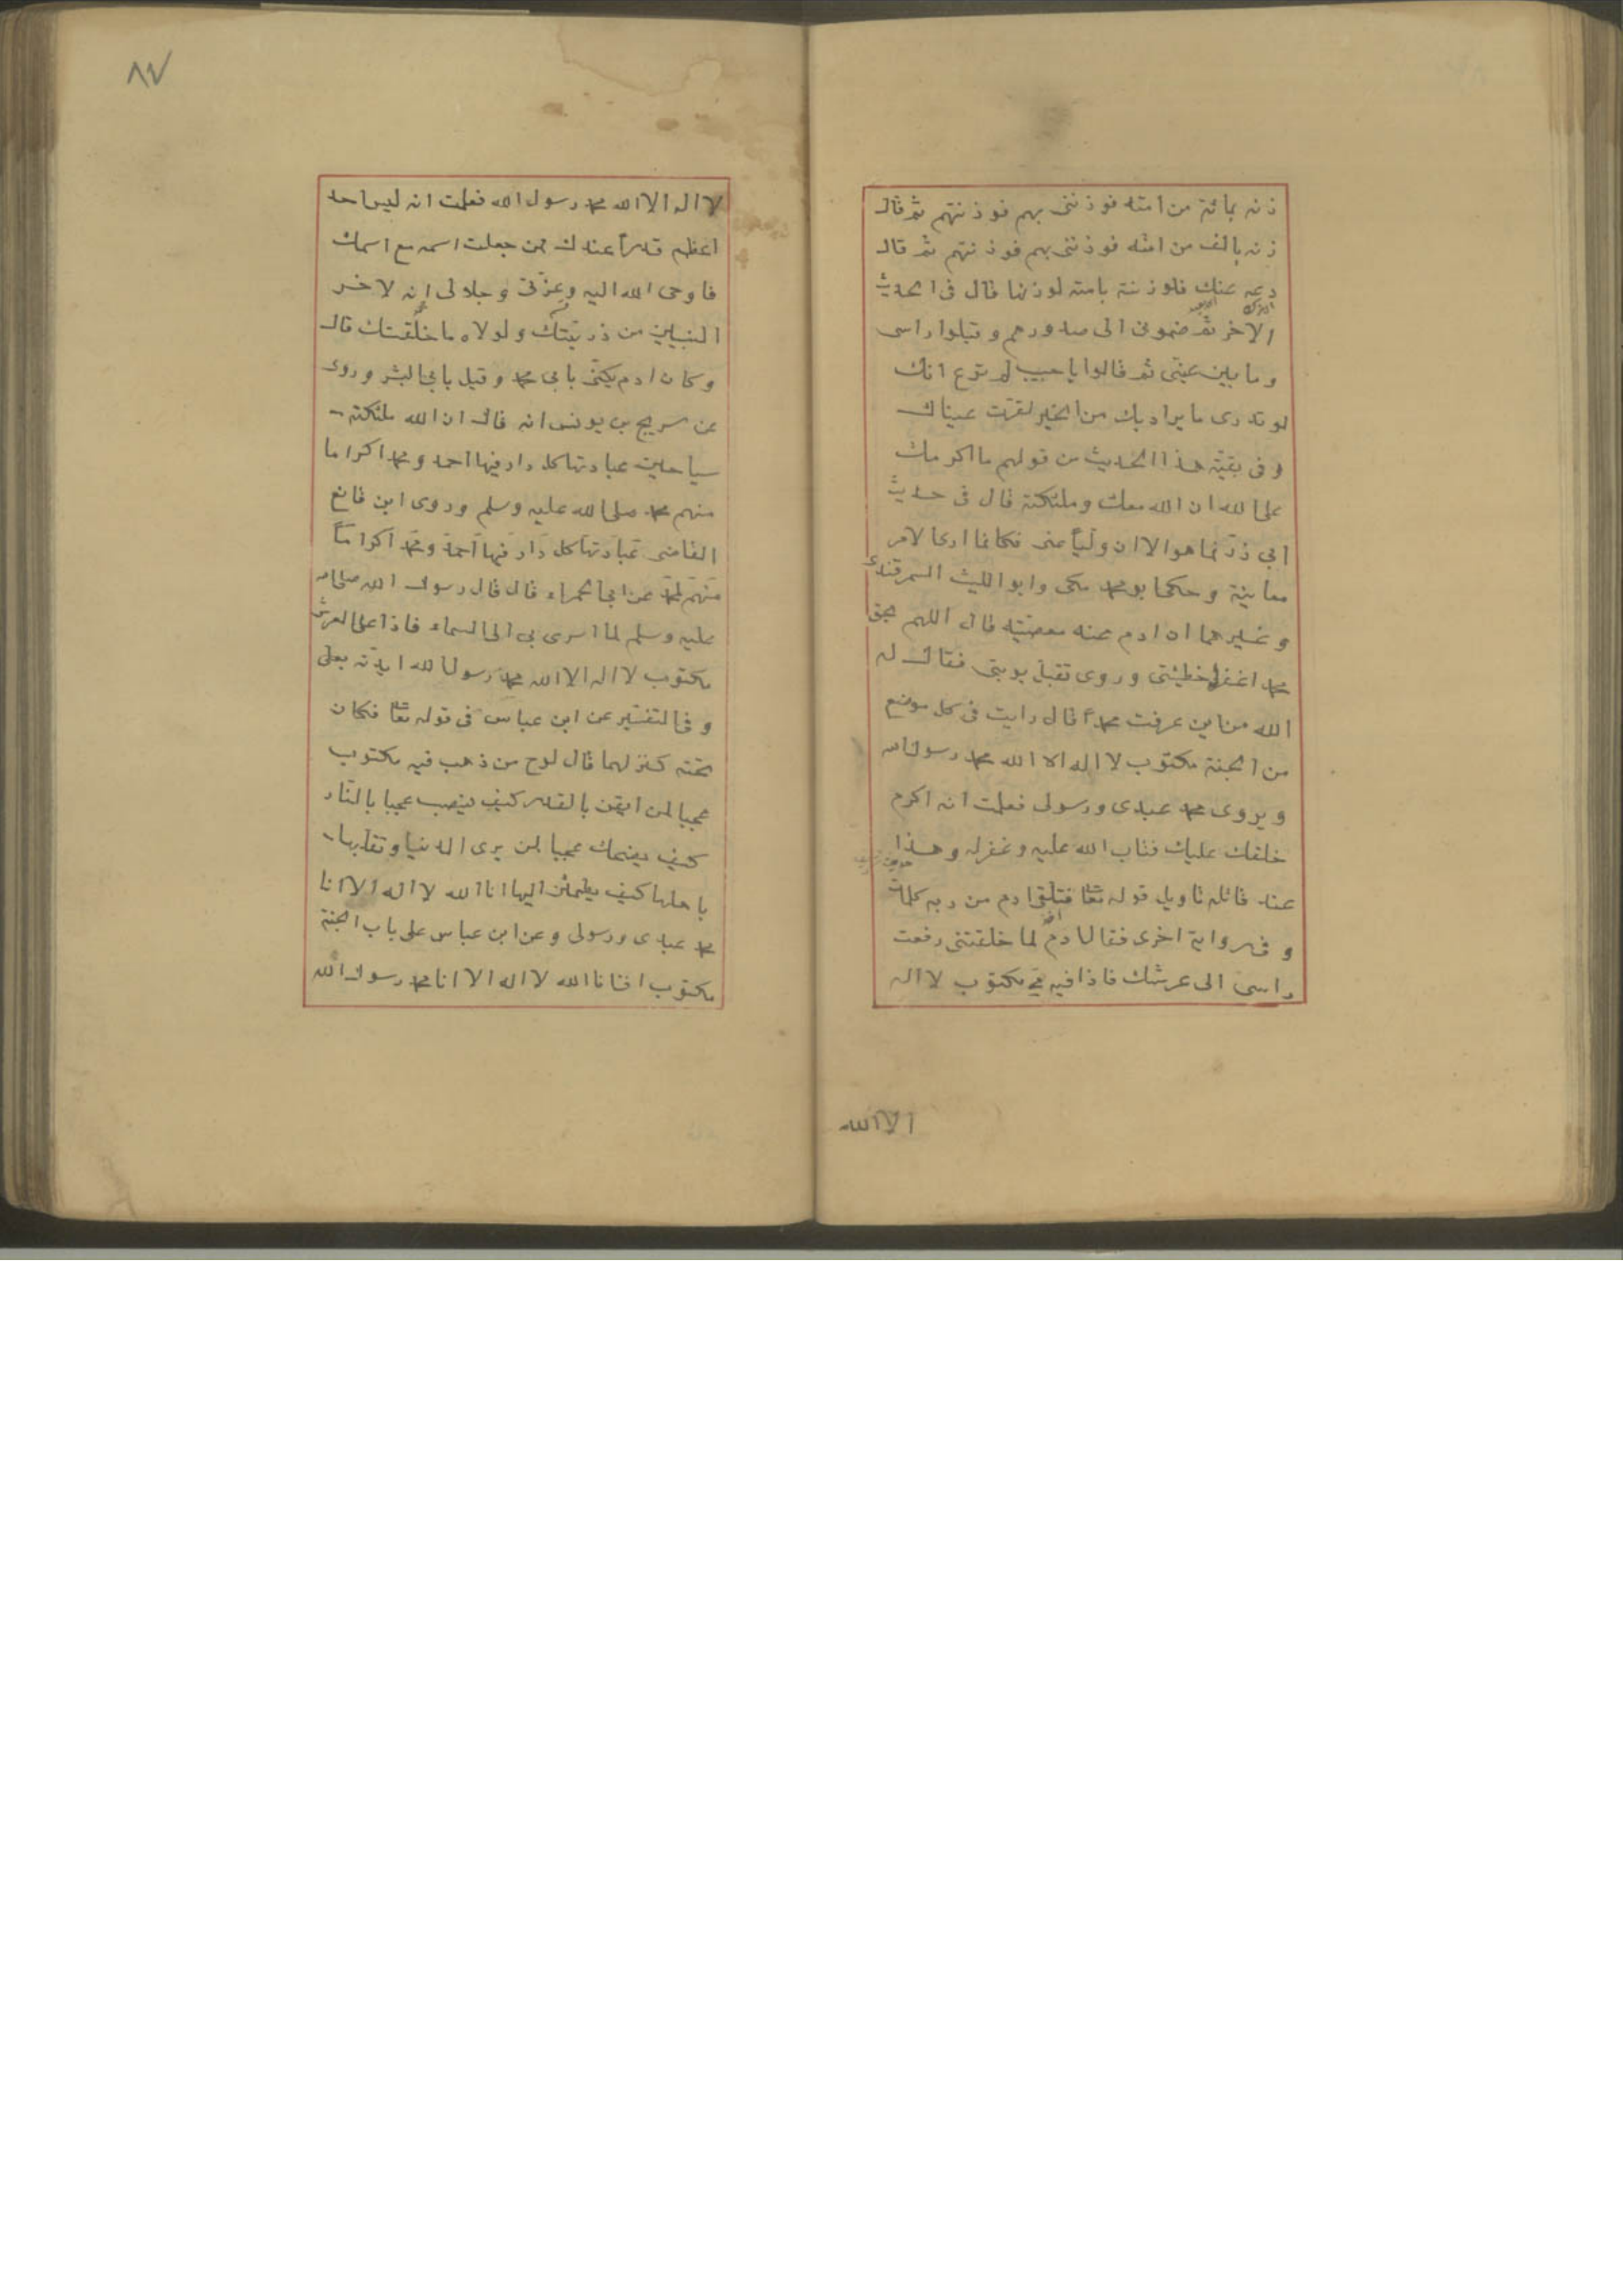 زنه بمائة من امته فوزننى بهم فوزنتهم ثم قال
زنه بالف من امته فوزننى بهم فوزنتهم ثم قال
دعه عنك فلو زنته بامته لوزنها قال فى الحديث
الاخر ثم ضمونى الى صدورهم و قبلوا راسى
وما بين عينى ثم قالوا يا حبيب لم ترع انك
لو تدرى ما يراد بك من الخير لقرت عيناك
وفى بقية هذا الحديث من قولهم ما اكرمك
على الله ان الله معك وملئكته قال فى حديث
ابى ذر فما هو الا ان وليا عنى فكانما ارى الامر
معاينة وحكى ابو محمد مكى وابو الليث السمرقندى
وغيرهما ان ادم عند معصيته قال اللهم بحق
محمد اغفر لى خطيئتى و روى تقبل توبتى فقال له
الله من اين عرفت محمدا قال رايت فى كل موضع
من الجنة مكتوب لا اله الا الله محمد رسول الله
ويروى محمد عبدى ورسولى فعلمت انه اكرم
خلقك عليك فتاب الله عليه وغفر له وهذا
عند قائله تاويل قوله تعا فتلقى ادم من ربه كلمات
و فى رواية اخرى فقال ادم لما خلقتنى رفعت
راسى الى عرشك فاذا فيه مكتوب لا اله
الا الله
٨٧
لا اله الا الله محمد رسول الله فعلمت انه ليس احد
اعظم قدرا عندك ممن جعلت اسمه مع اسمك
فاوحى الله اليه وعزتى و جلالى انه لاخر
النبيين من ذريتك ولولاه ما خلقتك قال
وكان ادم يكنى بابى محمد وقيل بابى البشر وروى
عن سريج بن يونس انه قال ان لله ملئكة
سياحين عبادتها كل دار فيها احمد و محمد اكراما
منهم محمد صلى الله عليه وسلم وروى ابن قانع
القاضى عبادتها كل دار فيها احمد و محمد اكراما
منهم لمحمد عن ابى الحمراء قال قال رسول الله صلى الله
عليه وسلم لما اسرى بى الى السماء فاذا على العرش
مكتوب لا اله الا الله محمد رسول الله ايدته بعلى
و فى التفسير عن ابن عباس فى قوله تعا فكان
تحته كنز لهما قال لوح من ذهب فيه مكتوب
عجبا لمن ايقن بالقدر كيف ينصب عجبا بالنار
كيف يضحك عجبا لمن يرى الدنيا وتقلبها
باهلها كيف يطمئن اليها انا الله لا اله الا انا
محمد عبدى ورسولى وعن ابن عباس على باب الجنة
مكتوب اننى انا الله لا اله الا انا محمد رسول الله